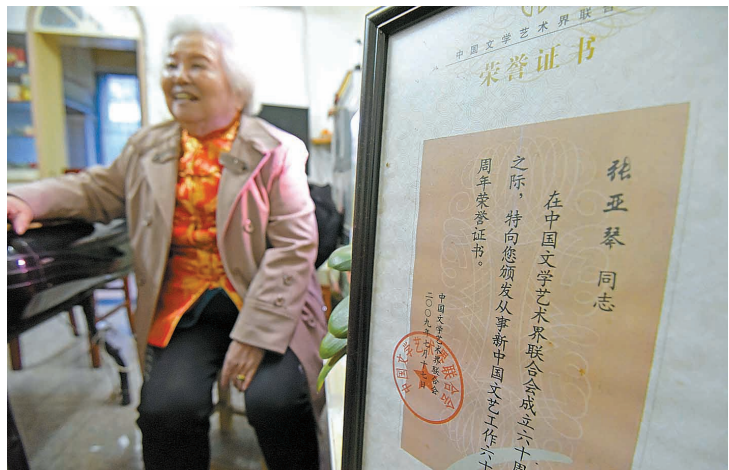 中国文学艺术界联合会
荣誉证书
张亚琴 同志
在中国文学艺术界联合会成立六十周
之际，特向您颁发从事新中国文艺工作六十
周年荣誉证书。
中国文学艺术界联合会
二〇〇九年七月十七日
中国文学艺术界联合会